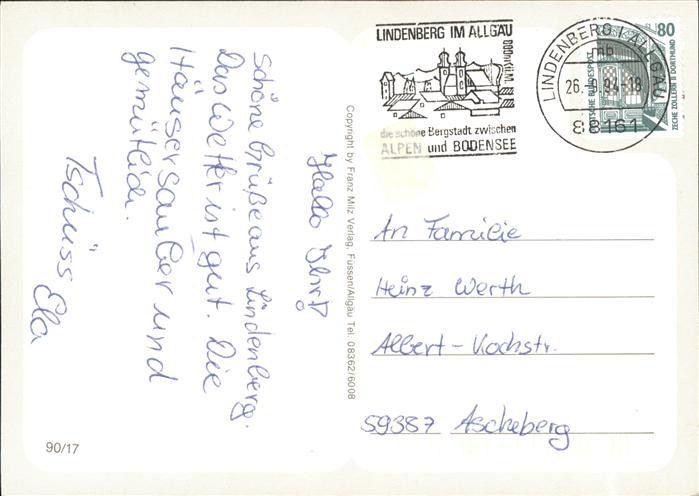 Hallo Ihr!
Schöne Grüße aus Lindenberg.
Das Wetter ist gut. Die
Häuser sauber und
gemütlich.
Tschüss Ela
90/17
Copyright by Franz Milz Verlag, Füssen/Allgäu Tel. 08362/6008
LINDENBERG IM ALLGÄU
800 m ü. M.
die schöne Bergstadt zwischen
ALPEN und BODENSEE
LINDENBERG I ALLGÄU
mb
94-18
88161
80
DEUTSCHE BUNDESPOST
ZECHE ZOLLERN II DORTMUND
An Familie
Heinz Werth
Albert-Kochstr.
59387 Ascheberg